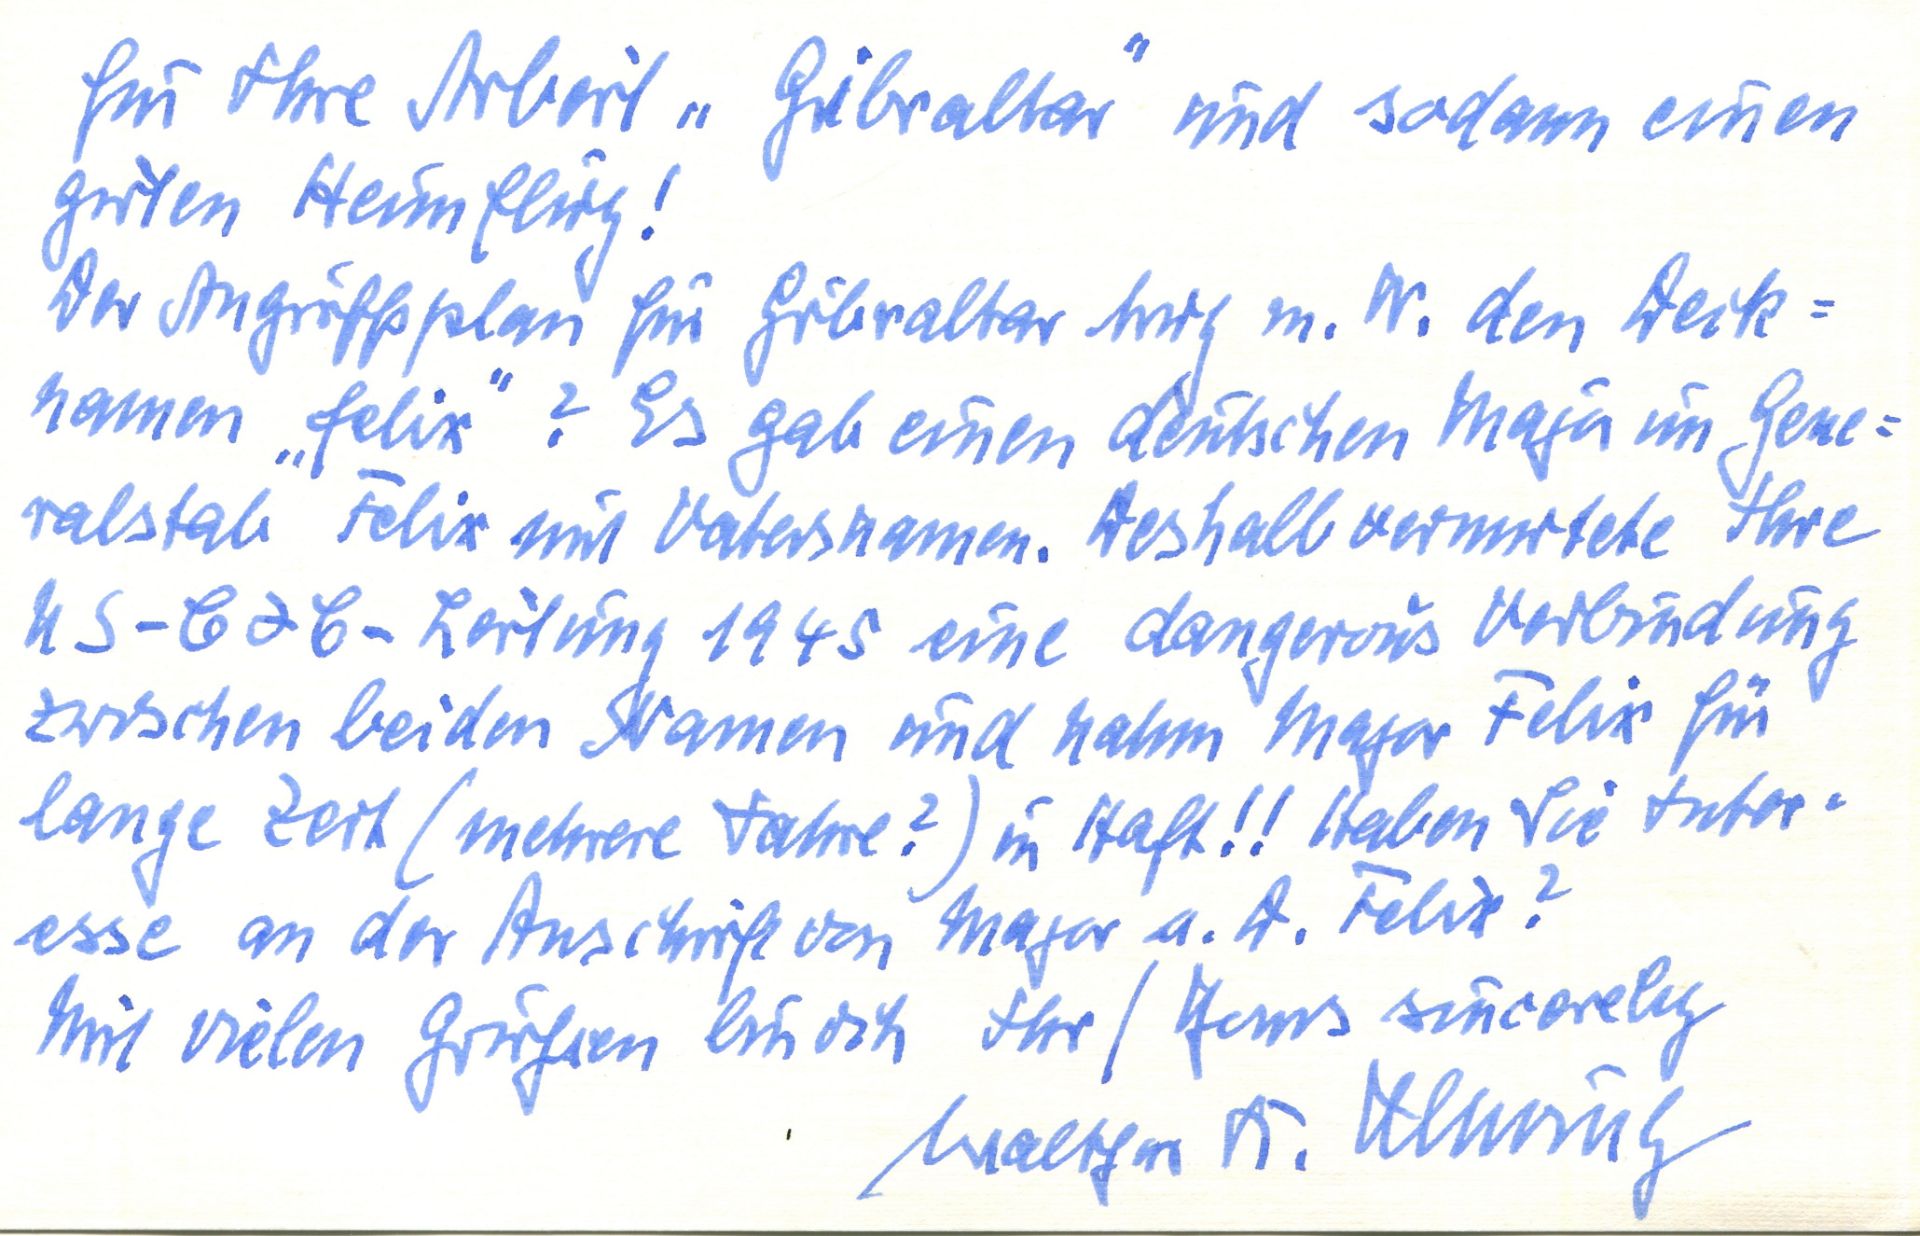 für Ihre Arbeit „Gibraltar" und sodann einen
guten Heimflug!
Der Angriffsplan für Gibraltar trug m. W. den Deck=
namen „Felix"? Es gab einen deutschen Major im Gene=
ralstab Felix mit Vatersnamen. Deshalb vermutete Ihre
US-CIC-Leitung 1945 eine dangerous Verbindung
zwischen beiden Namen und nahm Major Felix für
lange Zeit (mehrere Jahre?) in Haft!! Haben Sie Inter-
esse an der Anschrift von Major a. D. Felix?
Mit vielen Grüßen bin ich Ihr / Yours sincerely
Walther K.